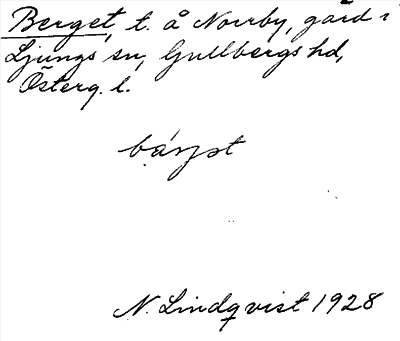 Berget, t. å Norrby, gård i
Ljungs sn, Gullbergs hd,
Österg. l.
N. Lindqvist 1928